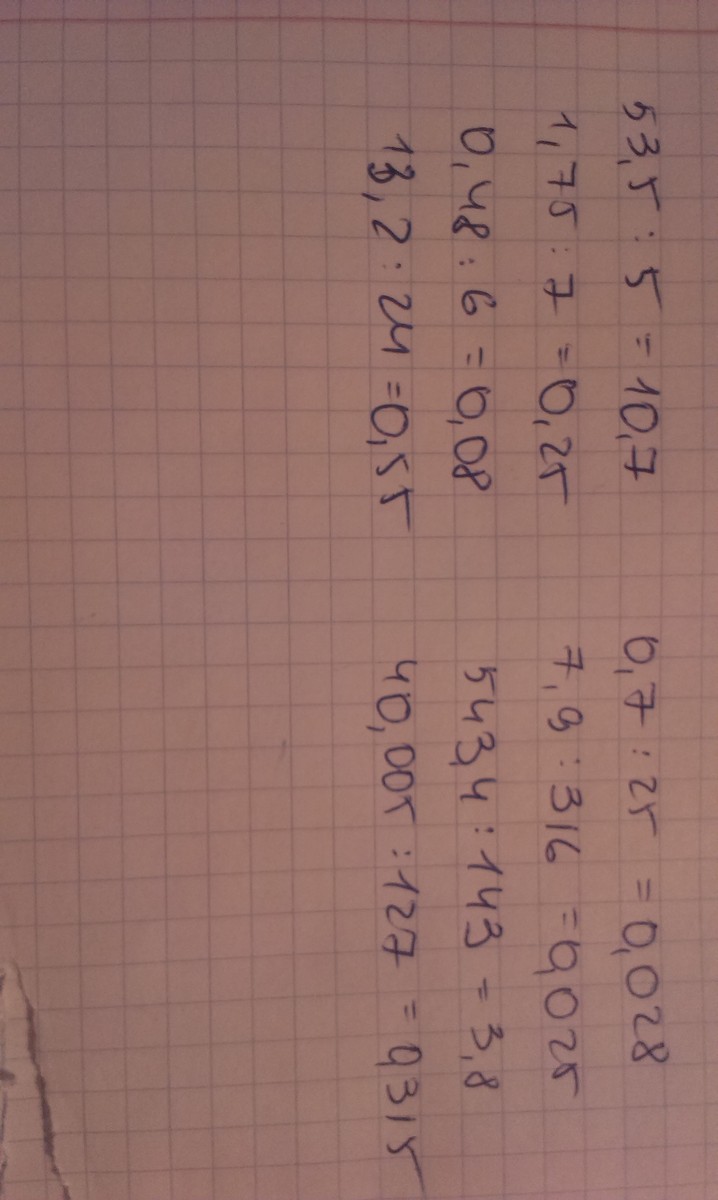 53,5 : 5 = 10,7
1,75 : 7 = 0,25
0,48 : 6 = 0,08
13,2 : 24 = 0,55
0,7 : 25 = 0,028
7,9 : 316 = 0,025
543,4 : 143 = 3,8
40,005 : 127 = 0,315